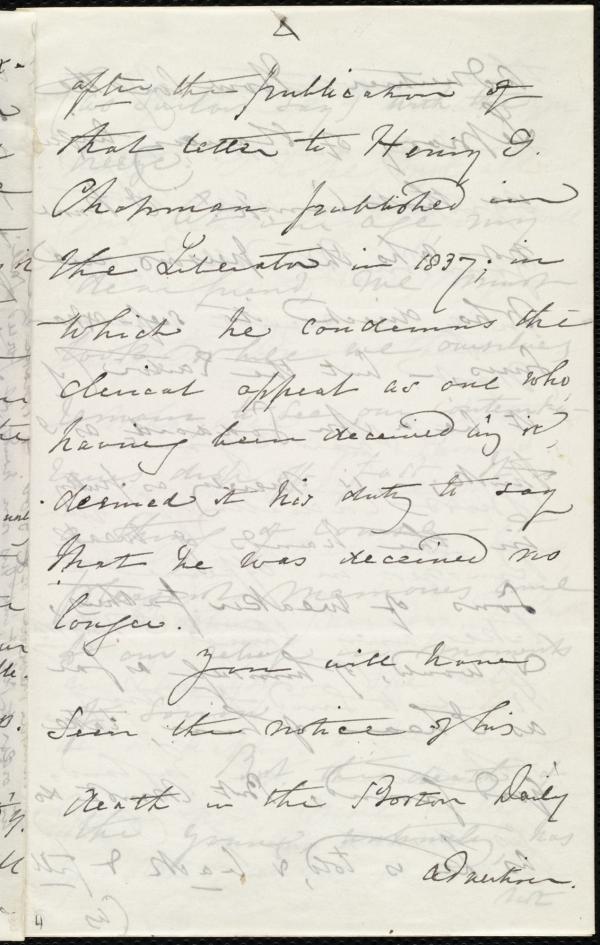 after the publication of
that letter to Henry G.
Chapman published in
the Liberator in 1837; in
which he condemns the
clerical appeal as one who,
having been deceived by it,
deemed it his duty to say
that he was deceived no
longer.
You will have
seen the notice of his
death in the Boston Daily
Advertiser.
4